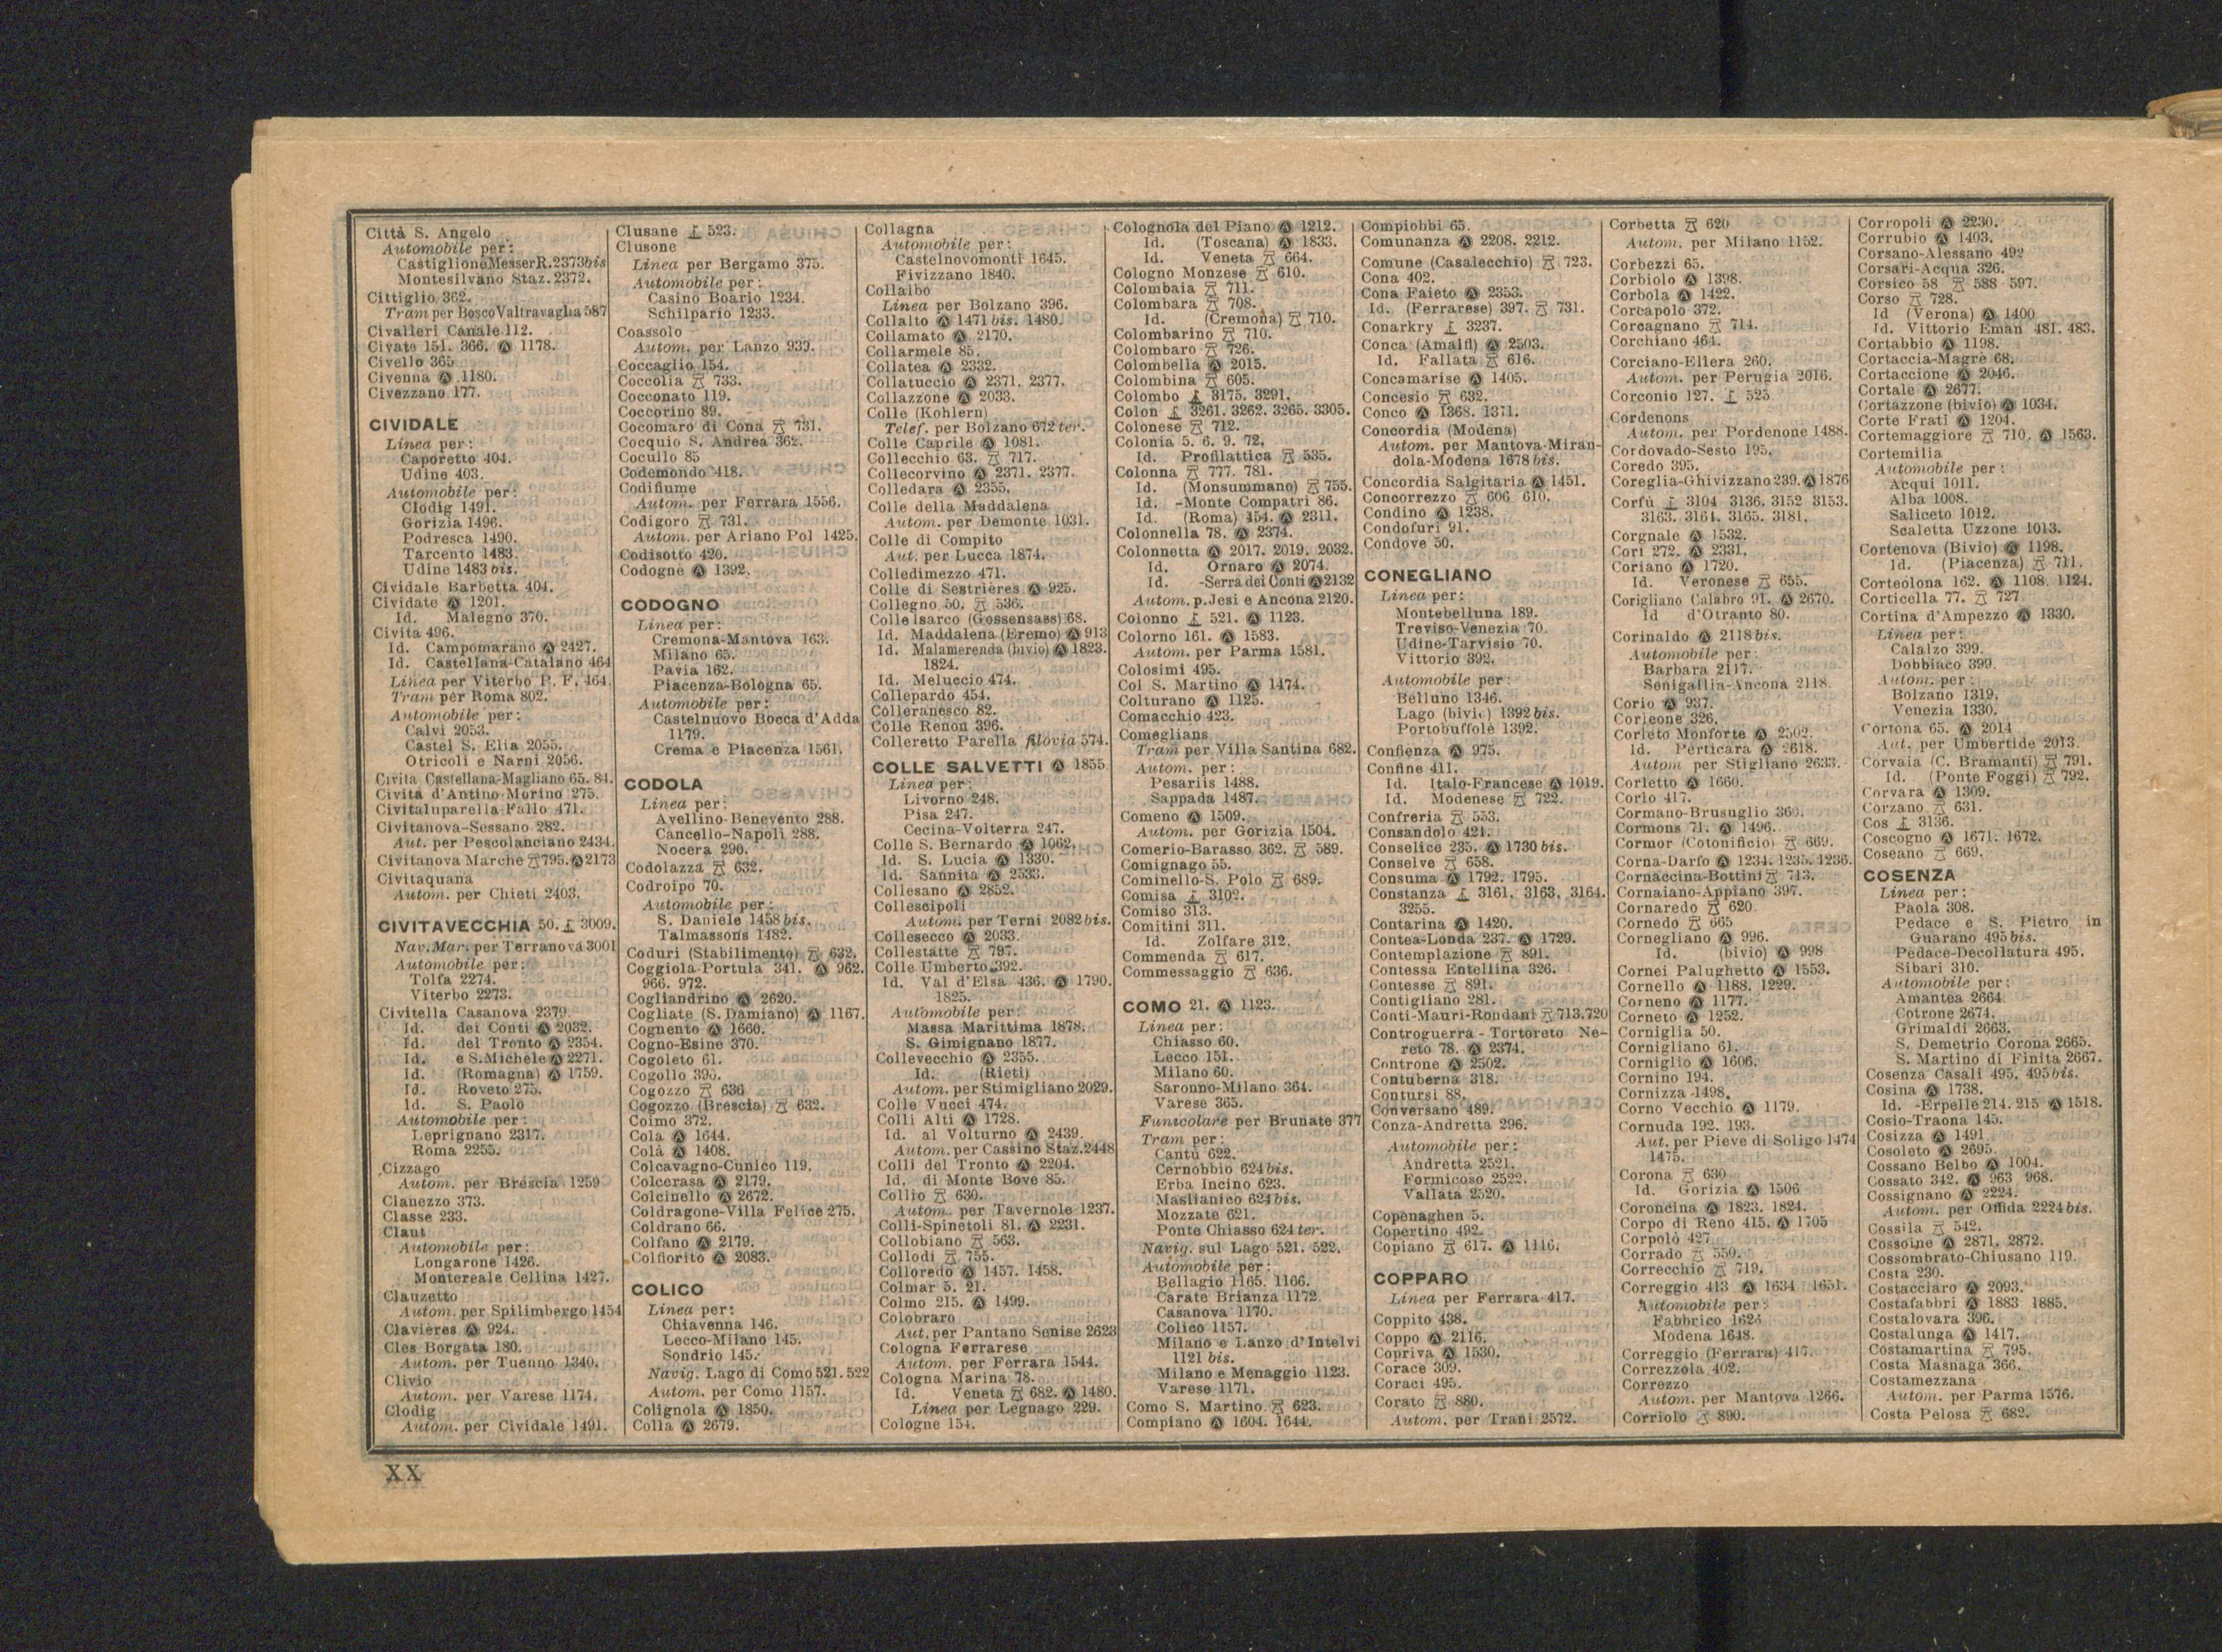 Città S. Angelo
Automobile per:
Castiglione Messer R. 2373 bis
Montesilvano Staz. 2372.
Cittiglio 362.
Tram per Bosco Valtravaglia 587
Civalleri Canale 112.
Civate 151. 366. Ⓐ 1178.
Civello 365
Civenna Ⓐ 1180.
Civezzano 177.
CIVIDALE
Linea per:
Caporetto 404.
Udine 403.
Automobile per:
Clodig 1491.
Gorizia 1496.
Podresca 1490.
Tarcento 1483.
Udine 1483 bis.
Cividale Barbetta 404.
Cividate Ⓐ 1201.
Id. Malegno 370.
Civita 496.
Id. Campomarano Ⓐ 2427.
Id. Castellana-Catalano 464
Linea per Viterbo P. F. 464.
Tram per Roma 802.
Automobile per:
Calvi 2053.
Castel S. Elia 2055.
Otricoli e Narni 2056.
Civita Castellana-Magliano 65. 84.
Civita d'Antino-Morino 275.
Civitaluparella-Fallo 471.
Civitanova-Sessano 282.
Aut. per Pescolanciano 2434.
Civitanova Marche 795. Ⓐ 2173
Civitaquana
Autom. per Chieti 2403.
CIVITAVECCHIA 50. 3009.
Nav. Mar. per Terranova 3001
Automobile per:
Tolfa 2274.
Viterbo 2273.
Civitella Casanova 2379.
Id. dei Conti Ⓐ 2032.
Id. del Tronto Ⓐ 2354.
Id. e S. Michele Ⓐ 2271.
Id. (Romagna) Ⓐ 1759.
Id. Roveto 275.
Id. S. Paolo
Automobile per:
Leprignano 2317.
Roma 2255.
Cizzago
Autom. per Brescia 1259
Clanezzo 373.
Classe 233.
Claut
Automobile per:
Longarone 1426.
Montereale Cellina 1427.
Clauzetto
Autom. per Spilimbergo 1454
Clavières Ⓐ 924.
Cles Borgata 180.
Autom. per Tuenno 1340.
Clivio
Autom. per Varese 1174.
Clodig
Autom. per Cividale 1491.
Clusane 523.
Clusone
Linea per Bergamo 375.
Automobile per:
Casino Boario 1234.
Schilpario 1233.
Coassolo
Autom. per Lanzo 939.
Coccaglio 154.
Coccolia 733.
Cocconato 119.
Coccorino 89.
Cocomaro di Cona 731.
Cocquio S. Andrea 362.
Cocullo 85
Codemondo 418.
Codifiume
Autom. per Ferrara 1556.
Codigoro 731.
Autom. per Ariano Pol 1425.
Codisotto 420.
Codognè Ⓐ 1392.
CODOGNO
Linea per:
Cremona-Mantova 163.
Milano 65.
Pavia 162.
Piacenza-Bologna 65.
Automobile per:
Castelnuovo Bocca d'Adda
1179.
Crema e Piacenza 1561.
CODOLA
Linea per:
Avellino-Benevento 288.
Cancello-Napoli 288.
Nocera 290.
Codolazza 632.
Codroipo 70.
Automobile per:
S. Daniele 1458 bis.
Talmassons 1482.
Coduri (Stabilimento) 632.
Coggiola-Portula 341. Ⓐ 962.
966. 972.
Cogliandrino Ⓐ 2620.
Cogliate (S. Damiano) Ⓐ 1167.
Cognento Ⓐ 1660.
Cogno-Esine 370.
Cogoleto 61.
Cogollo 395.
Cogozzo 636
Cogozzo (Brescia) 632.
Coimo 372.
Cola Ⓐ 1644.
Colà Ⓐ 1408.
Colcavagno-Cunico 119.
Colcerasa Ⓐ 2179.
Colcinello Ⓐ 2672.
Coldragone-Villa Felice 275.
Coldrano 66.
Colfano Ⓐ 2179.
Colfiorito Ⓐ 2083.
COLICO
Linea per:
Chiavenna 146.
Lecco-Milano 145.
Sondrio 145.
Navig. Lago di Como 521. 522
Autom. per Como 1157.
Colignola Ⓐ 1850.
Colla Ⓐ 2679.
Collagna
Automobile per:
Castelnovomonti 1645.
Fivizzano 1840.
Collalbo
Linea per Bolzano 396.
Collalto Ⓐ 1471 bis. 1480.
Collamato Ⓐ 2170.
Collarmele 85.
Collatea Ⓐ 2332.
Collatuccio Ⓐ 2371. 2377.
Collazzone Ⓐ 2033.
Colle (Kohlern)
Telef. per Bolzano 672 ter.
Colle Caprile Ⓐ 1081.
Collecchio 63. 717.
Collecorvino Ⓐ 2371. 2377.
Colledara Ⓐ 2355.
Colle della Maddalena
Autom. per Demonte 1031.
Colle di Compito
Aut. per Lucca 1874.
Colledimezzo 471.
Colle di Sestrières Ⓐ 925.
Collegno 50. 536.
Colle Isarco (Gossensass) 68.
Id. Maddalena (Eremo) Ⓐ 913
Id. Malamerenda (bivio) Ⓐ 1823.
1824.
Id. Meluccio 474.
Collepardo 454.
Colleranesco 82.
Colle Renon 396.
Colleretto Parella filovia 574.
COLLE SALVETTI Ⓐ 1855
Linea per:
Livorno 248.
Pisa 247.
Cecina-Volterra 247.
Colle S. Bernardo Ⓐ 1062.
Id. S. Lucia Ⓐ 1330.
Id. Sannita Ⓐ 2533.
Collesano Ⓐ 2852.
Collescipoli
Autom. per Terni 2082 bis.
Collesecco Ⓐ 2033.
Collestatte 797.
Colle Umberto 392.
Id. Val d'Elsa 436. Ⓐ 1790.
1825.
Automobile per:
Massa Marittima 1878.
S. Gimignano 1877.
Collevecchio Ⓐ 2355.
Id. (Rieti)
Autom. per Stimigliano 2029.
Colle Vucci 474.
Colli Alti Ⓐ 1728.
Id. al Volturno Ⓐ 2439.
Autom. per Cassino Staz. 2448
Colli del Tronto Ⓐ 2204.
Id. di Monte Bove 85.
Collio 630.
Autom. per Tavernole 1237.
Colli-Spinetoli 81. Ⓐ 2231.
Collobiano 563.
Collodi 755.
Colloredo Ⓐ 1457. 1458.
Colmar 5. 21.
Colmo 215. Ⓐ 1499.
Colobraro
Aut. per Pantano Senise 2623
Cologna Ferrarese
Autom. per Ferrara 1544.
Cologna Marina 78.
Id. Veneta 682. Ⓐ 1480.
Linea per Legnago 229.
Cologne 154.
Colognola del Piano Ⓐ 1212.
Id. (Toscana) Ⓐ 1833.
Id. Veneta 664.
Cologno Monzese 610.
Colombaia 711.
Colombara 708.
Id. (Cremona) 710.
Colombarino 710.
Colombaro 726.
Colombella Ⓐ 2015.
Colombina 605.
Colombo 3175. 3291.
Colon 3261. 3262. 3265. 3305.
Colonese 712.
Colonia 5. 6. 9. 72.
Id. Profilattica 535.
Colonna 777. 781.
Id. (Monsummano) 755.
Id. -Monte Compatri 86.
Id. (Roma) 454. Ⓐ 2311.
Colonnella 78. Ⓐ 2374.
Colonnetta Ⓐ 2017. 2019. 2032.
Id. Ornaro Ⓐ 2074.
Id. -Serra dei Conti Ⓐ 2132
Autom. p. Jesi e Ancona 2120.
Colonno 521. Ⓐ 1123.
Colorno 161. Ⓐ 1583.
Autom. per Parma 1581.
Colosimi 495.
Col S. Martino Ⓐ 1474.
Colturano Ⓐ 1125.
Comacchio 423.
Comeglians
Tram per Villa Santina 682.
Autom. per:
Pesariis 1488.
Sappada 1487.
Comeno Ⓐ 1509.
Autom. per Gorizia 1504.
Comerio-Barasso 362. 589.
Comignago 55.
Cominello-S. Polo 689.
Comisa 3102.
Comiso 313.
Comitini 311.
Id. Zolfare 312.
Commenda 617.
Commessaggio 636.
COMO 21. Ⓐ 1123.
Linea per:
Chiasso 60.
Lecco 151.
Milano 60.
Saronno-Milano 364.
Varese 365.
Funicolare per Brunate 377
Tram per:
Cantù 622.
Cernobbio 624 bis.
Erba Incino 623.
Maslianico 624 bis.
Mozzate 621.
Ponte Chiasso 624 ter.
Navig. sul Lago 521. 522.
Automobile per:
Bellagio 1165. 1166.
Carate Brianza 1172.
Casanova 1170.
Colico 1157.
Milano e Lanzo d'Intelvi
1121 bis.
Milano e Menaggio 1123.
Varese 1171.
Como S. Martino 623.
Compiano Ⓐ 1604. 1644.
Compiobbi 65.
Comunanza Ⓐ 2208. 2212.
Comune (Casalecchio) 723.
Cona 402.
Cona Faieto Ⓐ 2353.
Id. (Ferrarese) 397. 731.
Conarkry 3237.
Conca (Amalfi) Ⓐ 2503.
Id. Fallata 616.
Concamarise Ⓐ 1405.
Concesio 632.
Conco Ⓐ 1368. 1371.
Concordia (Modena)
Autom. per Mantova-Miran-
dola-Modena 1678 bis.
Concordia Salgitaria Ⓐ 1451.
Concorrezzo 606 610.
Condino Ⓐ 1238.
Condofuri 91.
Condove 50.
CONEGLIANO
Linea per:
Montebelluna 189.
Treviso-Venezia 70.
Udine-Tarvisio 70.
Vittorio 392.
Automobile per:
Belluno 1346.
Lago (bivio) 1392 bis.
Portobuffolè 1392.
Confienza Ⓐ 975.
Confine 411.
Id. Italo-Francese Ⓐ 1019.
Id. Modenese 722.
Confreria 553.
Consandolo 421.
Conselice 235. Ⓐ 1730 bis.
Conselve 658.
Consuma Ⓐ 1792. 1795.
Constanza 3161. 3163. 3164.
3255.
Contarina Ⓐ 1420.
Contea-Londa 237. Ⓐ 1729.
Contemplazione 891.
Contessa Entellina 326.
Contesse 891.
Contigliano 281.
Conti-Mauri-Rondani 713.720
Controguerra - Tortoreto Ne-
reto 78. Ⓐ 2374.
Controne Ⓐ 2502.
Contuberna 318.
Contursi 88.
Conversano 489.
Conza-Andretta 296.
Automobile per:
Andretta 2521.
Formicoso 2522.
Vallata 2520.
Copenaghen 5.
Copertino 492.
Copiano 617. Ⓐ 1116.
COPPARO
Linea per Ferrara 417.
Coppito 438.
Coppo Ⓐ 2116.
Copriva Ⓐ 1530.
Corace 309.
Coraci 495.
Corato 880.
Autom. per Trani 2572.
Corbetta 620
Autom. per Milano 1152.
Corbezzi 65.
Corbiolo Ⓐ 1398.
Corbola Ⓐ 1422.
Corcapolo 372.
Corcagnano 714.
Corchiano 464.
Corciano-Ellera 260.
Autom. per Perugia 2016.
Corconio 127. 525
Cordenons
Autom. per Pordenone 1488.
Cordovado-Sesto 195.
Coredo 395.
Coreglia-Ghivizzano 239. Ⓐ 1876
Corfù 3104 3136. 3152 3153.
3163. 3164. 3165. 3181.
Corgnale Ⓐ 1532.
Cori 272. Ⓐ 2331.
Coriano Ⓐ 1720.
Id. Veronese 655.
Corigliano Calabro 91. Ⓐ 2670.
Id d'Otranto 80.
Corinaldo Ⓐ 2118 bis.
Automobile per:
Barbara 2117.
Senigallia-Ancona 2118.
Corio Ⓐ 937.
Corleone 326.
Corleto Monforte Ⓐ 2502.
Id. Perticara Ⓐ 2618.
Autom per Stigliano 2633.
Corletto Ⓐ 1660.
Corlo 417.
Cormano-Brusuglio 360.
Cormons 71. Ⓐ 1496.
Cormor (Cotonificio) 669.
Corna-Darfo Ⓐ 1234. 1235. 1236.
Cornaccina-Bottini 713.
Cornaiano-Appiano 397.
Cornaredo 620
Cornedo 665
Cornegliano Ⓐ 996.
Id. (bivio) Ⓐ 998
Cornei Palughetto Ⓐ 1553.
Cornello Ⓐ 1188. 1229.
Corneno Ⓐ 1177.
Corneto Ⓐ 1252.
Corniglia 50.
Cornigliano 61.
Corniglio Ⓐ 1606.
Cornino 194.
Cornizza 1498.
Corno Vecchio Ⓐ 1179.
Cornuda 192. 193.
Aut. per Pieve di Soligo 1474
1475.
Corona 630
Id. Gorizia Ⓐ 1506
Coroncina Ⓐ 1823. 1824.
Corpo di Reno 415. Ⓐ 1705
Corpolò 427
Corrado 550.
Correcchio 719.
Correggio 413 Ⓐ 1634 1651.
Automobile per:
Fabbrico 1626
Modena 1648.
Correggio (Ferrara) 417.
Correzzola 402.
Correzzo
Autom. per Mantova 1266.
Corriolo 890.
Corropoli Ⓐ 2230.
Corrubio Ⓐ 1403.
Corsano-Alessano 492
Corsari-Acqua 326.
Corsico 58 588 597.
Corso 728.
Id (Verona) Ⓐ 1400
Id. Vittorio Eman 481. 483.
Cortabbio Ⓐ 1198.
Cortaccia-Magrè 68.
Cortaccione Ⓐ 2046.
Cortale Ⓐ 2677.
Cortazzone (bivio) Ⓐ 1034.
Corte Frati Ⓐ 1204.
Cortemaggiore 710. Ⓐ 1563.
Cortemilia
Automobile per:
Acqui 1011.
Alba 1008.
Saliceto 1012.
Scaletta Uzzone 1013.
Cortenova (Bivio) Ⓐ 1198.
Id. (Piacenza) 711.
Corteolona 162. Ⓐ 1108. 1124.
Corticella 77. 727
Cortina d'Ampezzo Ⓐ 1330.
Linea per:
Calalzo 399.
Dobbiaco 399.
Autom. per:
Bolzano 1319.
Venezia 1330.
Cortona 65. Ⓐ 2014
Aut. per Umbertide 2013.
Corvaia (C. Bramanti) 791.
Id. (Ponte Foggi) 792.
Corvara Ⓐ 1309.
Corzano 631.
Cos 3136.
Coscogno Ⓐ 1671. 1672.
Coseano 669.
COSENZA
Linea per:
Paola 308.
Pedace e S. Pietro in
Guarano 495 bis.
Pedace-Decollatura 495.
Sibari 310.
Automobile per:
Amantea 2664.
Cotrone 2674.
Grimaldi 2663.
S. Demetrio Corona 2665.
S. Martino di Finita 2667.
Cosenza Casali 495. 495 bis.
Cosina Ⓐ 1738.
Id. -Erpelle 214. 215 Ⓐ 1518.
Cosio-Traona 145.
Cosizza Ⓐ 1491
Cosoleto Ⓐ 2695.
Cossano Belbo Ⓐ 1004.
Cossato 342. Ⓐ 963 968.
Cossignano Ⓐ 2224.
Autom. per Offida 2224 bis.
Cossila 542.
Cossoine Ⓐ 2871. 2872.
Cossombrato-Chiusano 119.
Costa 230.
Costacciaro Ⓐ 2093.
Costafabbri Ⓐ 1883 1885.
Costalovara 396.
Costalunga Ⓐ 1417.
Costamartina 795.
Costa Masnaga 366.
Costamezzana
Autom. per Parma 1576.
Costa Pelosa 682.
XX